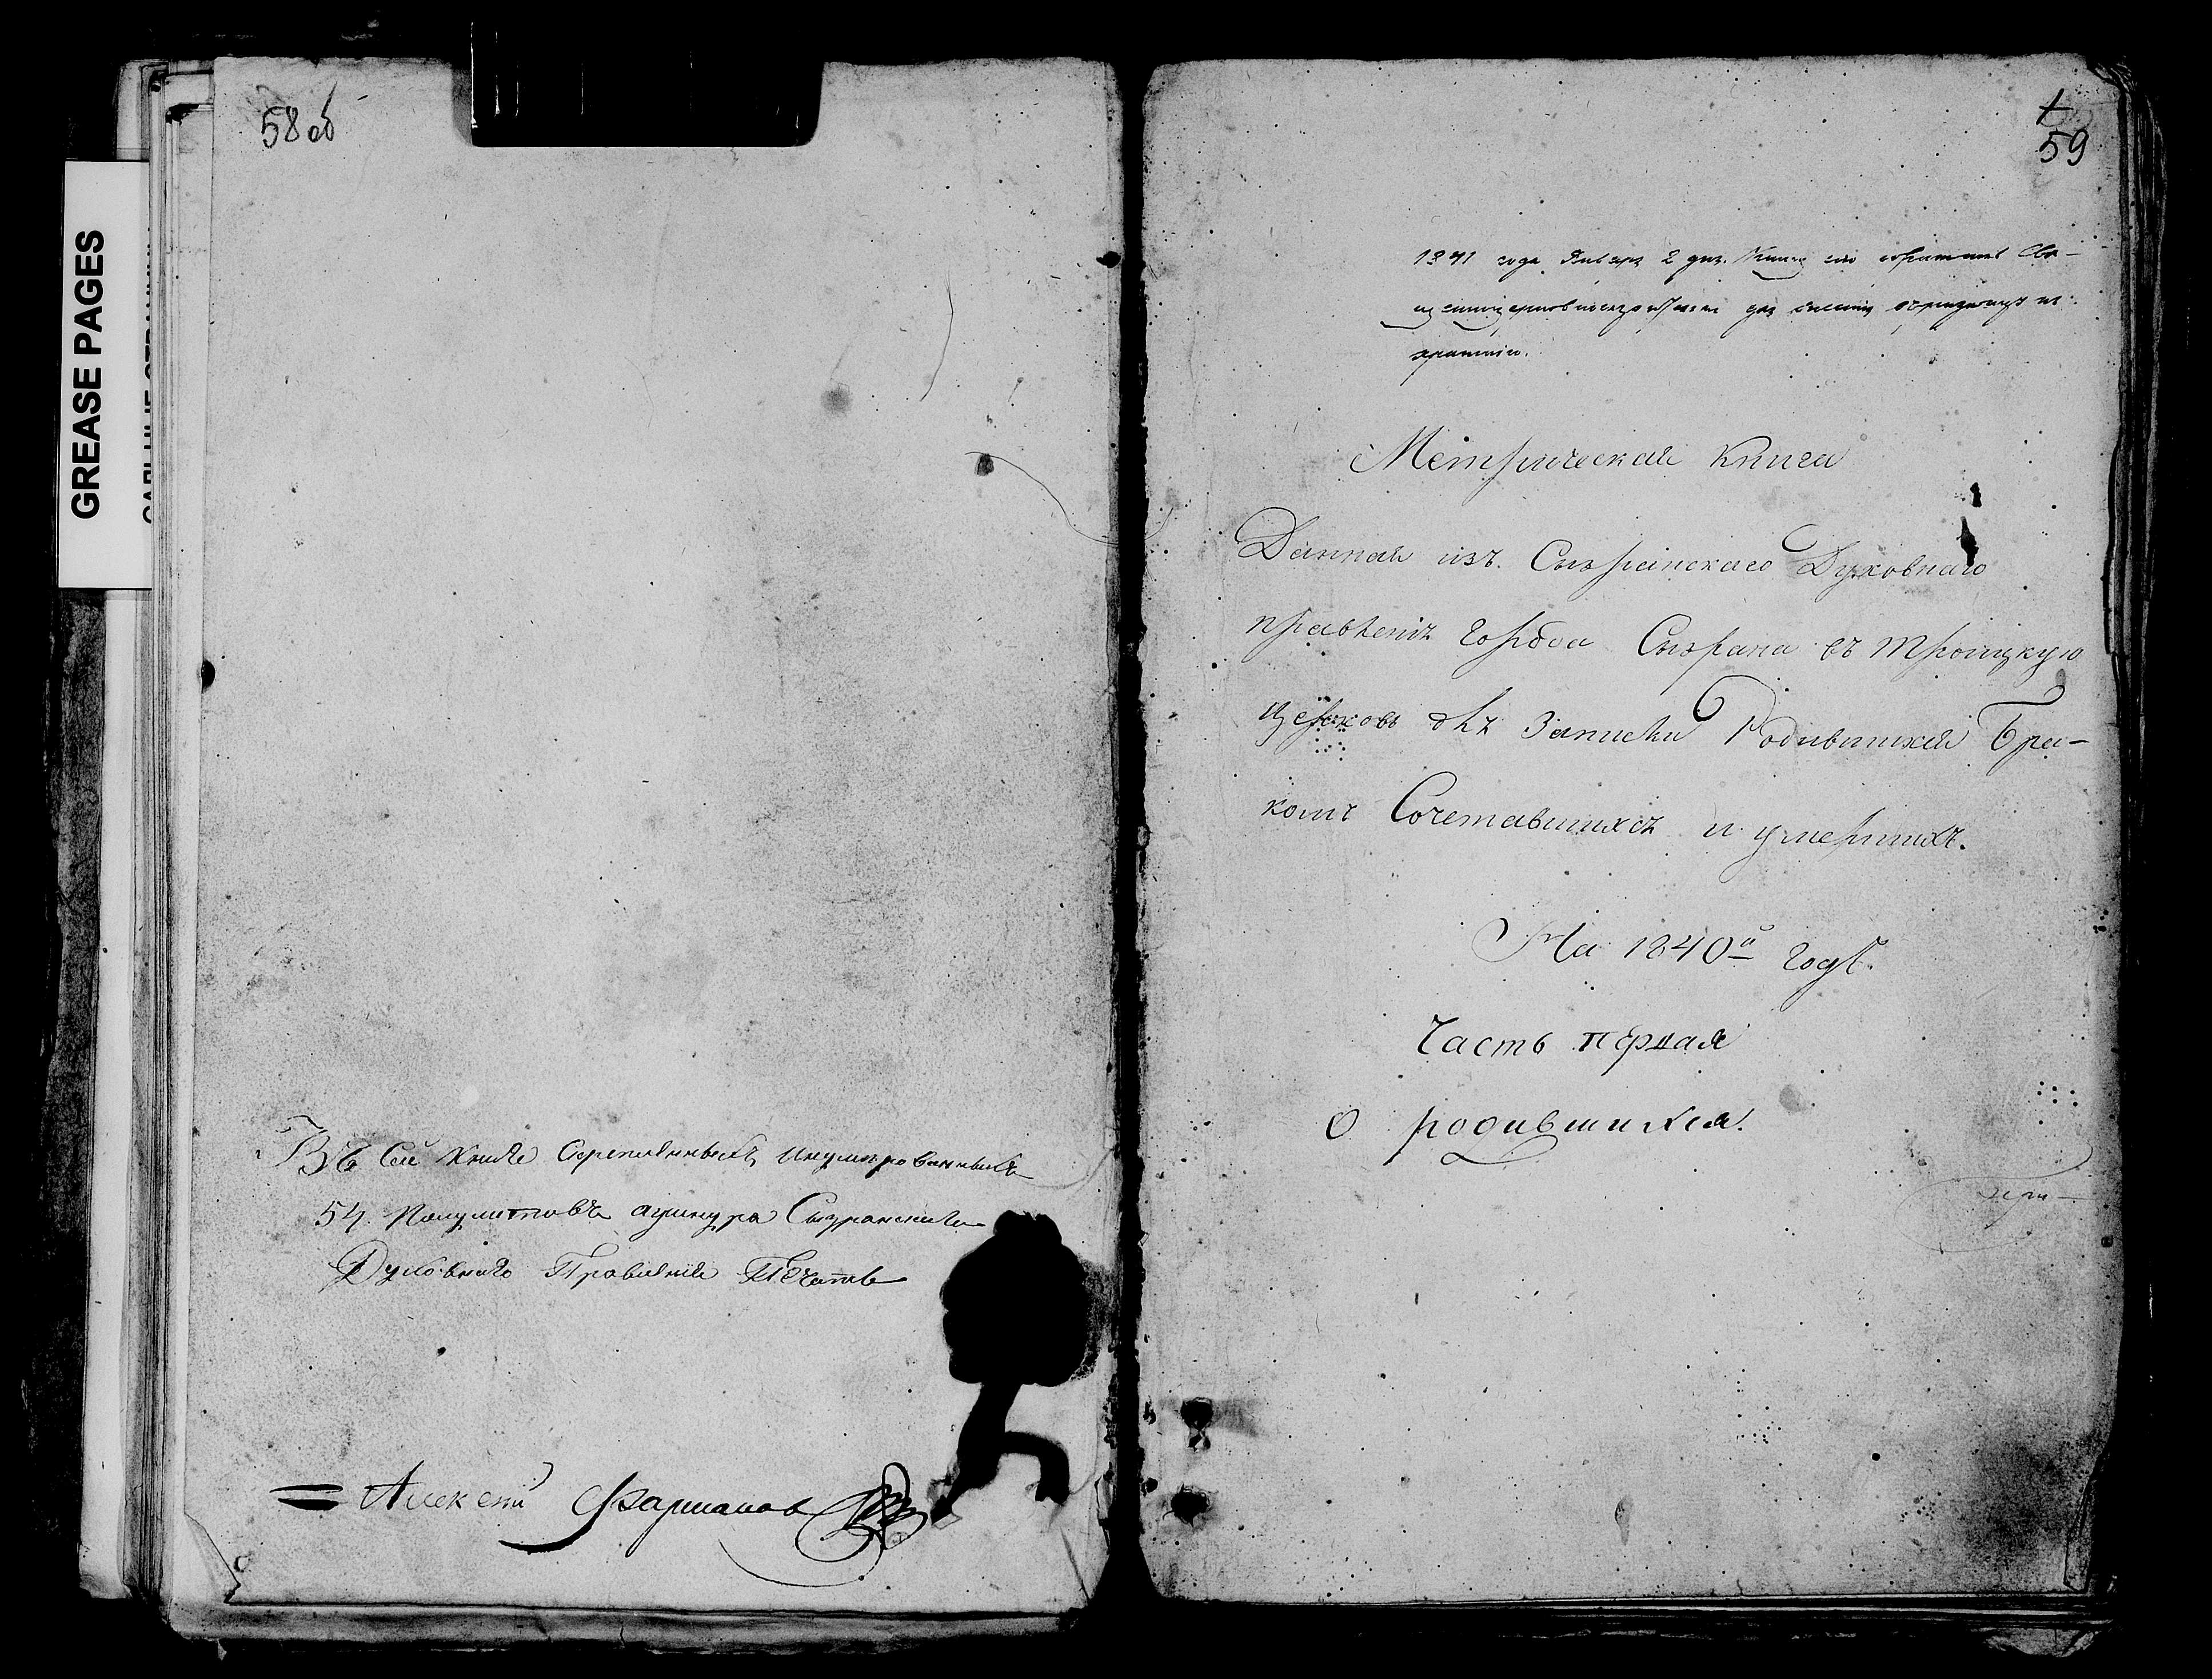 GREASE PAGES
58 об
Въ сей книге скрепленныхъ инумерованныхъ
54. Полулистовъ ашнура Сызранскаго
Духовнаго Правления Печать
Алексей Фармаков
1
59
1841 года Января 2 дня. Книга сию
хранения.
Метрическая книга
Данная изъ Сызранскаго Духовнаго
правления города Сызрана въ Троицкую
церковь для записки Родившихся Бра-
комъ Сочетавшихся и умершихъ.
На 1840й годъ.
Часть первая
О родившихся.